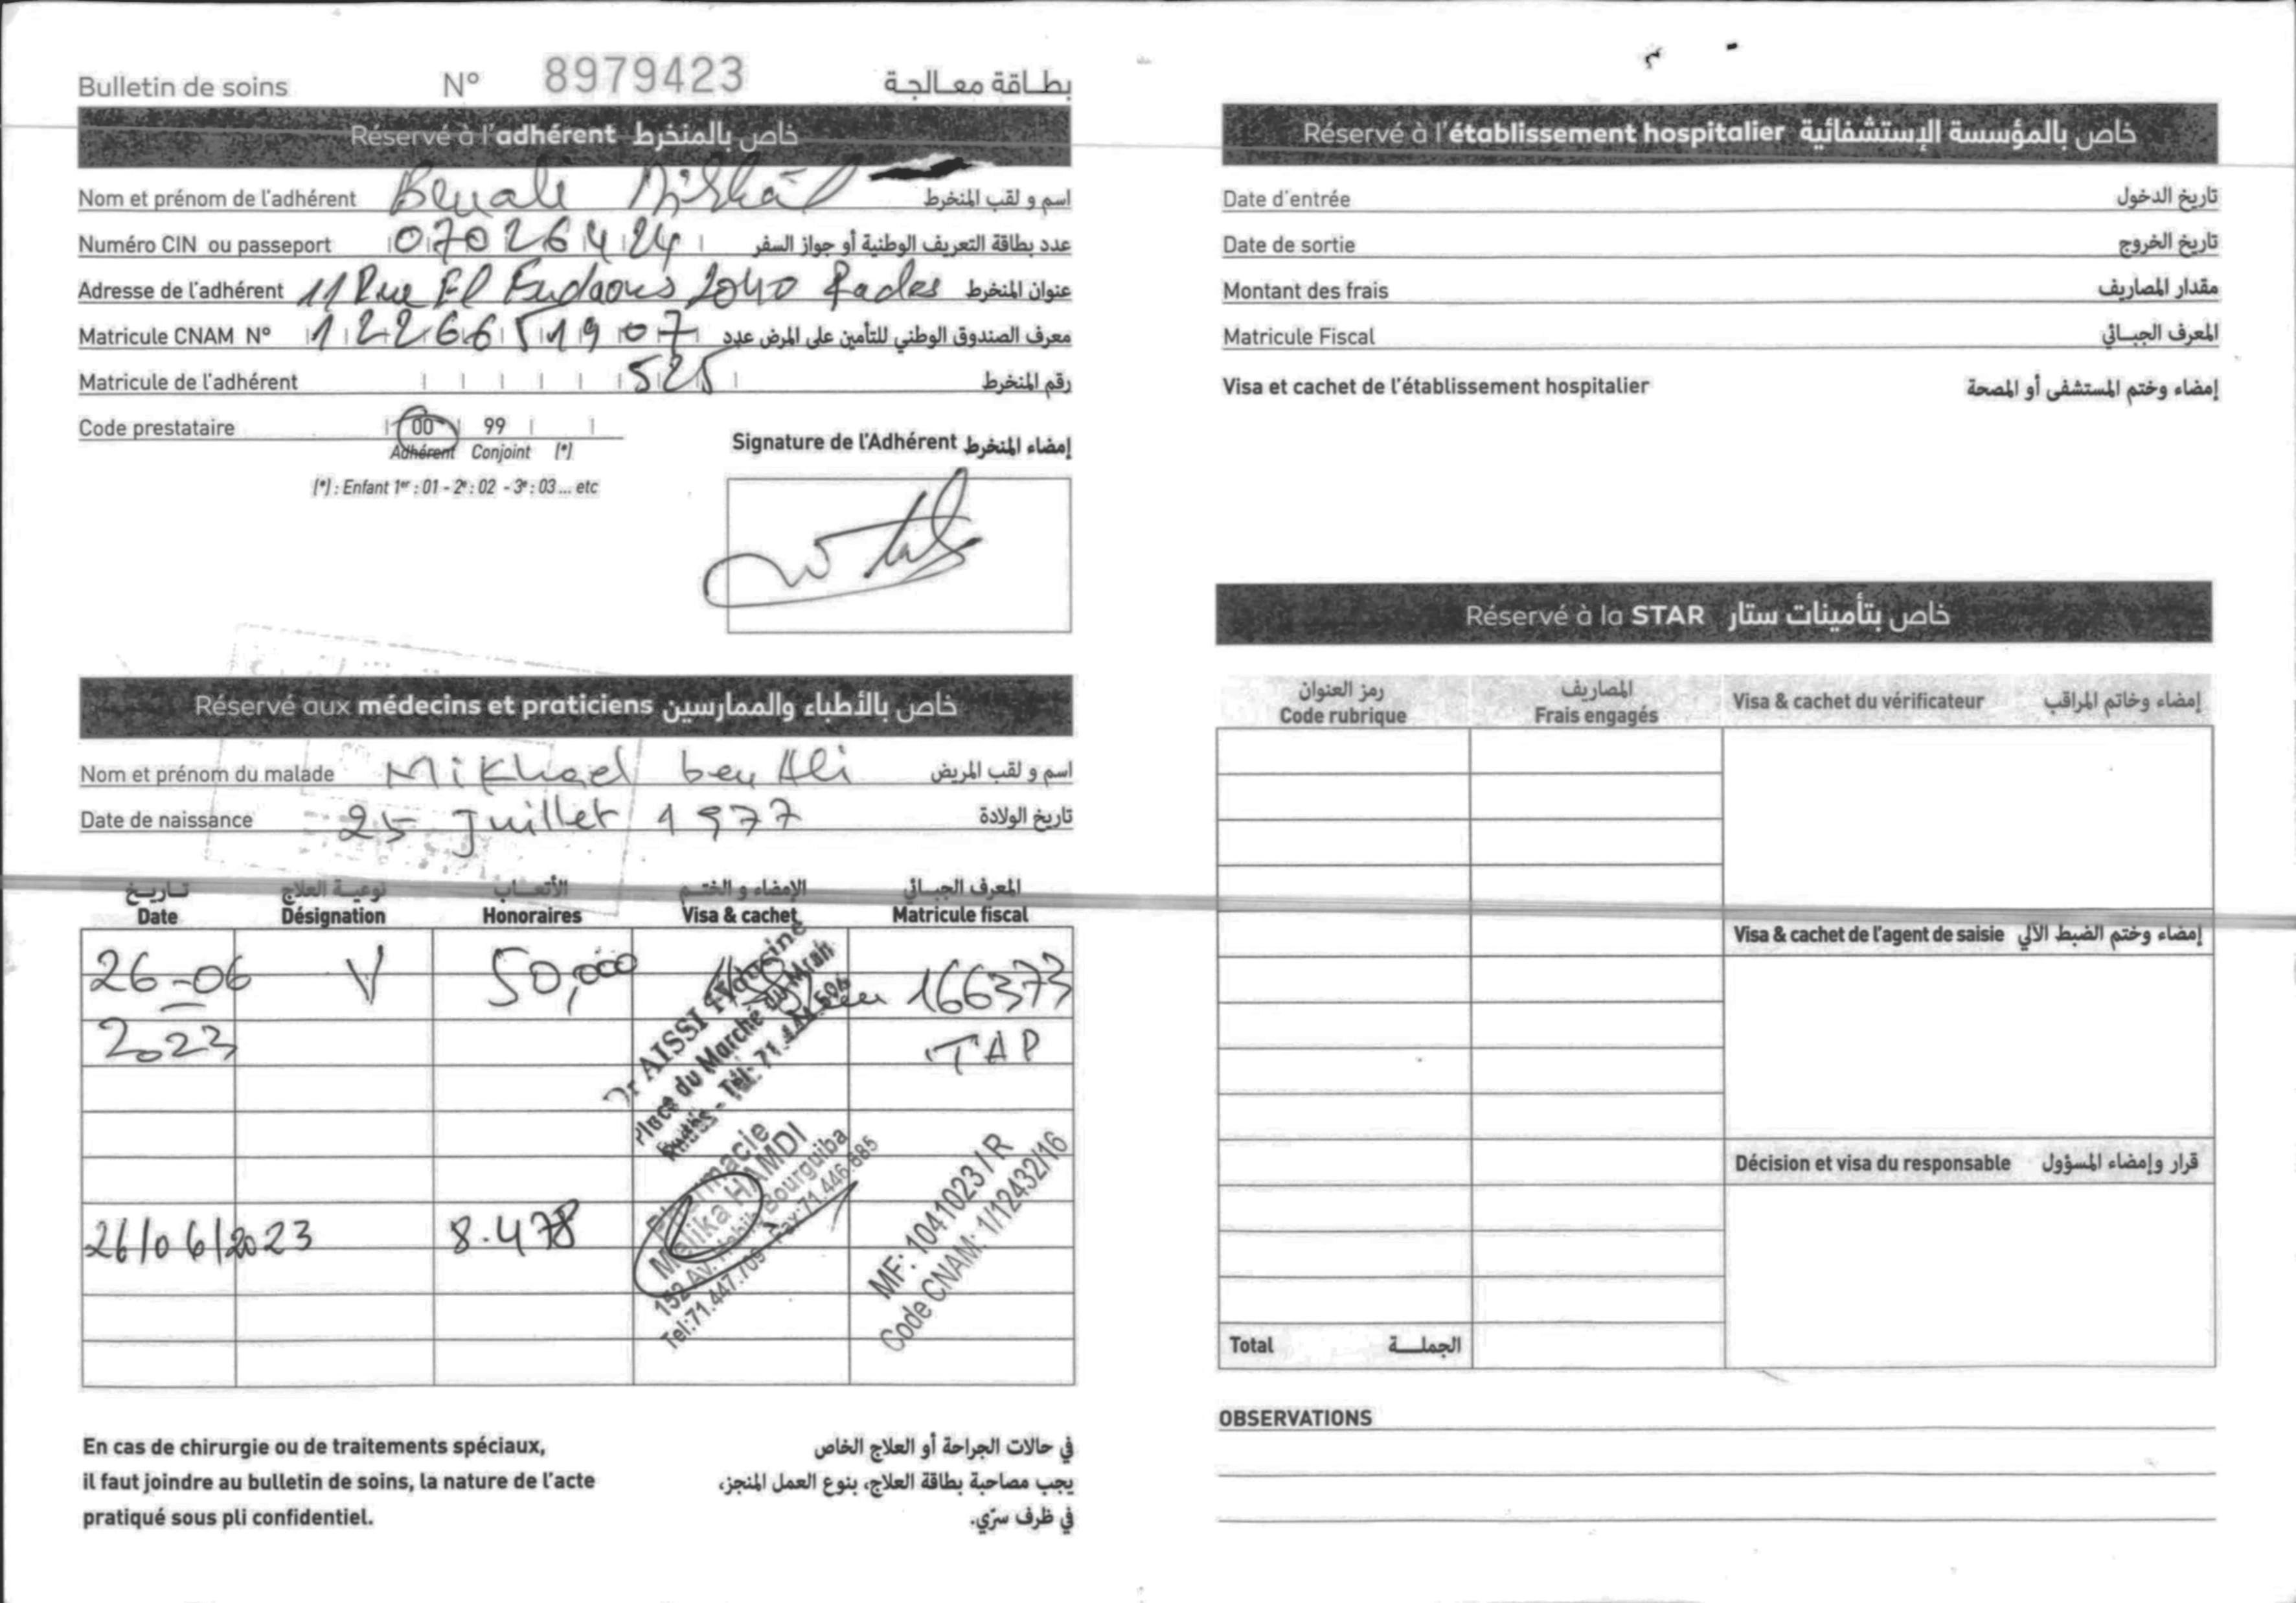 Bulletin de soins N° 8979423 بطاقة معالجة
Réservé à l'adhérent خاص بالمنخرط
Nom et prénom de l'adhérent Benali Mikhaël اسم و لقب المنخرط
Numéro CIN ou passeport 07026424 عدد بطاقة التعريف الوطنية أو جواز السفر
Adresse de l'adhérent 11 Rue El 2040 Rades عنوان المنخرط
Matricule CNAM N° 1226651907 معرف الصندوق الوطني للتأمين على المرض عدد
Matricule de l'adhérent 525 رقم المنخرط
Code prestataire 00 99
Adhérent Conjoint (*)
(*) : Enfant 1er : 01 - 2e : 02 - 3e : 03 ... etc
Signature de l'Adhérent إمضاء المنخرط
Réservé aux médecins et praticiens خاص بالأطباء والممارسين
Nom et prénom du malade Mikhael ben Ali اسم و لقب المريض
Date de naissance 25 Juillet 1977 تاريخ الولادة
تاريخ نوعية العلاج الأتعاب الإمضاء و الختم المعرف الجبائي
Date Désignation Honoraires Visa & cachet Matricule fiscal
26-06 V 50,000 166373
2023 TAP
Dr AISSI
Place du Marché
Tél: 71
26/06/2023 8.478
Pharmacie
Malika HAMDI
152 Av. Habib Bourguiba
Tel:71.447.709 - Fax:71.446.685
MF: 1041023 / R
Code CNAM: 1/12432/16
En cas de chirurgie ou de traitements spéciaux,
il faut joindre au bulletin de soins, la nature de l'acte
pratiqué sous pli confidentiel.
في حالات الجراحة أو العلاج الخاص
يجب مصاحبة بطاقة العلاج، بنوع العمل المنجز،
في ظرف سرّي.
Réservé à l'établissement hospitalier خاص بالمؤسسة الإستشفائية
Date d'entrée تاريخ الدخول
Date de sortie تاريخ الخروج
Montant des frais مقدار المصاريف
Matricule Fiscal المعرف الجبائي
Visa et cachet de l'établissement hospitalier إمضاء وختم المستشفى أو المصحة
Réservé à la STAR خاص بتأمينات ستار
رمز العنوان المصاريف
Code rubrique Frais engagés Visa & cachet du vérificateur إمضاء وخاتم المراقب
Visa & cachet de l'agent de saisie إمضاء وختم الضبط الآلي
Décision et visa du responsable قرار وإمضاء المسؤول
Total الجملة
OBSERVATIONS